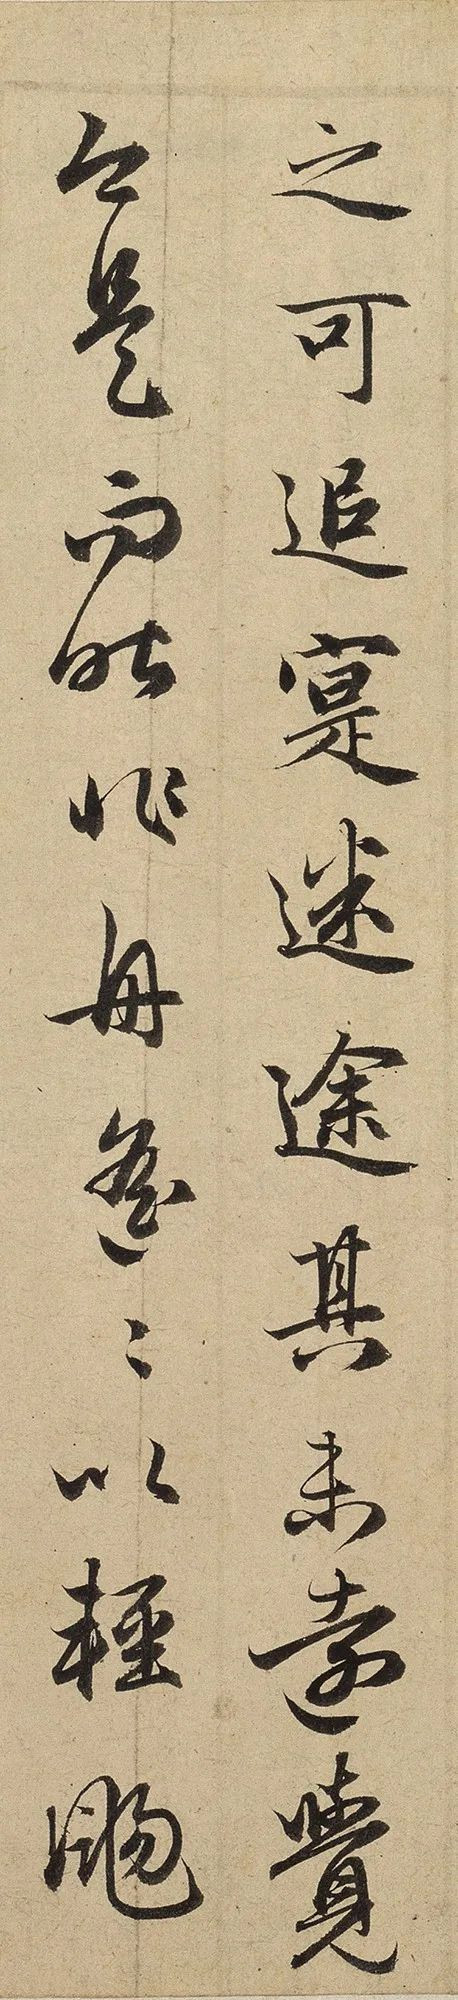 之可追寔迷途其未遠覺
今是而昨非舟遙〻以輕颺